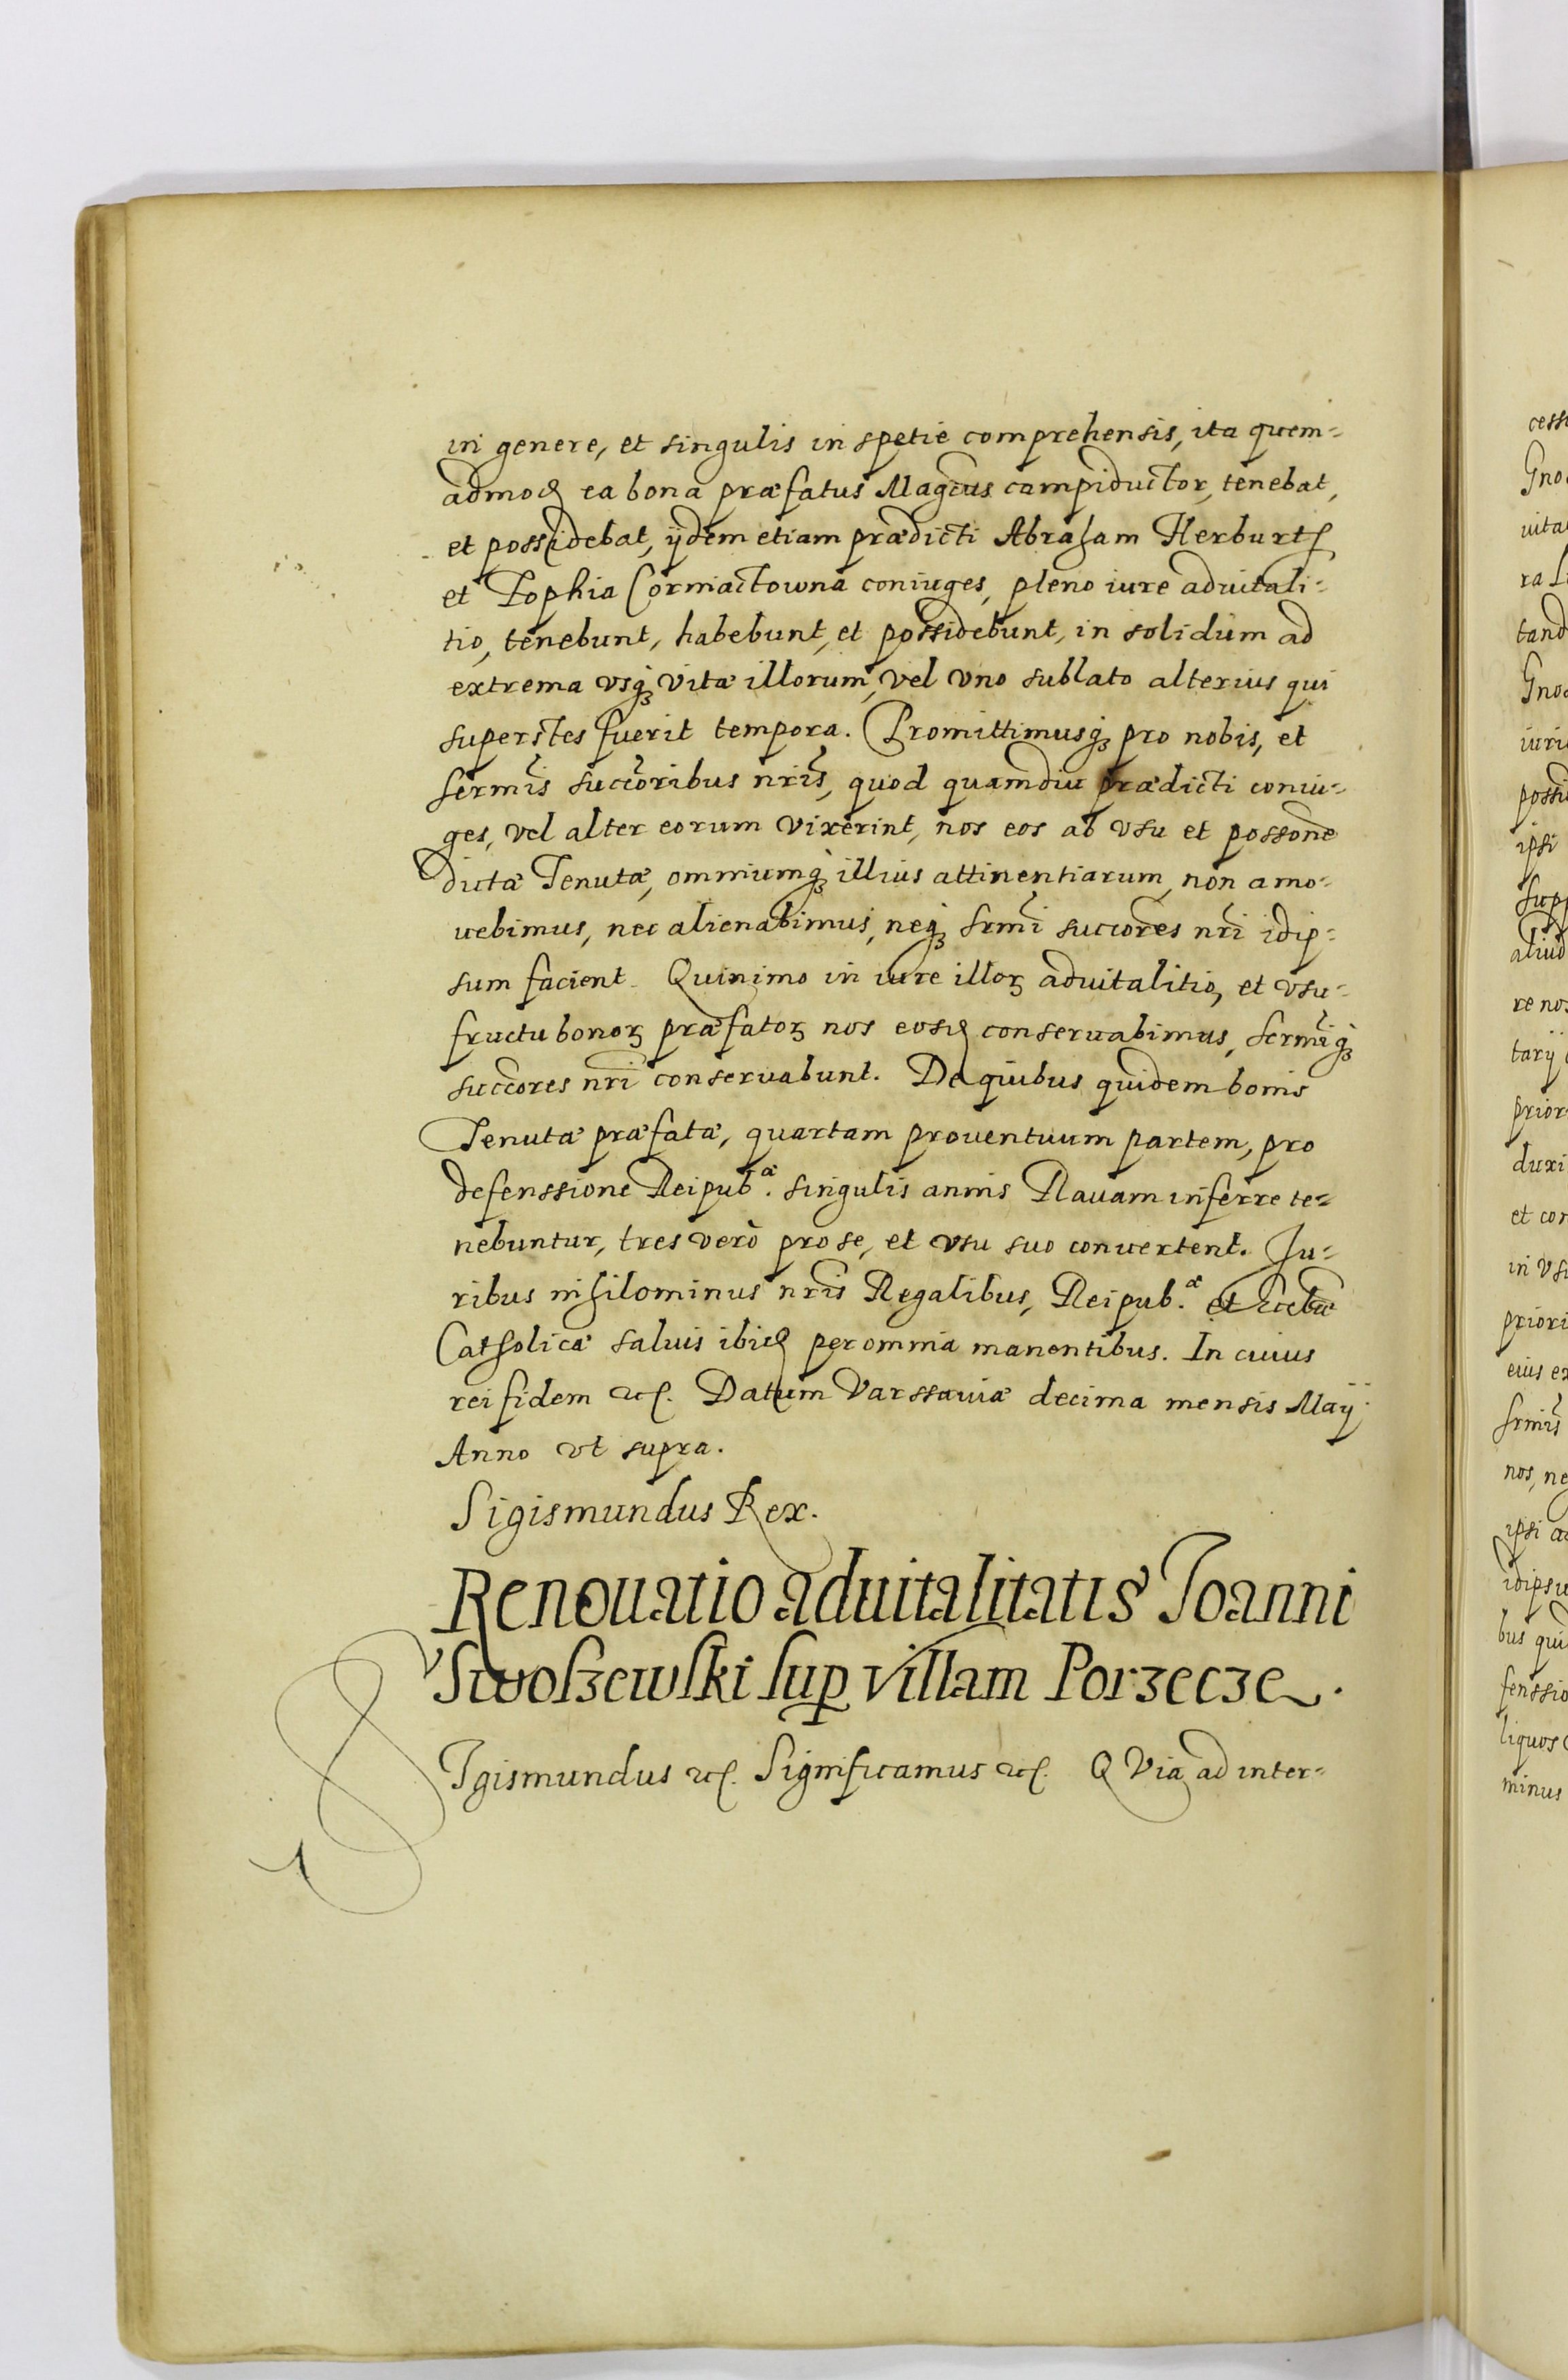 in genere, et singulis in spetie comprehensis, ita quem=
admodꝫ ea bona præfatus Magcus campiductor, tenebat,
et possidebat, ijdem etiam prædicti Abraham Herburth
et Sophia Corniactowna coniuges, pleno iure aduitali=
tio, tenebunt, habebunt, et possidebunt, in solidum ad
extrema vsqꝫ vitæ illorum, vel vno sublato alterius qui
superstes fuerit tempora. Promittimusqꝫ pro nobis, et
Sermis succoribus nris, quod quamdiu prædicti coniu=
ges, vel alter eorum vixerint, nos eos ab vsu et possone
dictæ Tenutæ, omniumqꝫ illius attinentiarum, non amo=
uebimus, nec alienabimus, neqꝫ Srmi succores nri idip=
sum facient. Quinimo in iure illorꝫ aduitalitio, et vsu=
fructu bonorꝫ præfatorꝫ nos eosdꝫ conseruabimus, Sermiqꝫ
succores nri conseruabunt. De quibus quidem bonis
Tenutæ præfatæ, quartam prouentuum partem, pro
defenssione Reipubᵃᵉ. singulis annis Rauam inferre te=
nebuntur, tres verò pro se, et vsu suo conuertent. Ju=
ribus nihilominus nris Regalibus, Reipub.ᵃᵉ et Eccliæ
Catholicæ saluis ibidꝫ per omnia manentibus. In cuius
rei fidem etc. Datum Varssauiæ decima mensis Maij
Anno vt supra.
Sigismundus Rex.
Renouatio aduitalitatis Joanni
Swoszewski sup villam Porzecze.
SIgismundus etc. Significamus etc. QVia ad inter=
cess
Gno
uita
ra
tand
Gno
iuri
possi
ipsi
Supp
aliud
re nos
tarij
prior
duxi
et con
in vs
priori
eius ex
Srmis
nos, ne
ipsi a
idipsu
bus qui
fenssio
liquos
minus